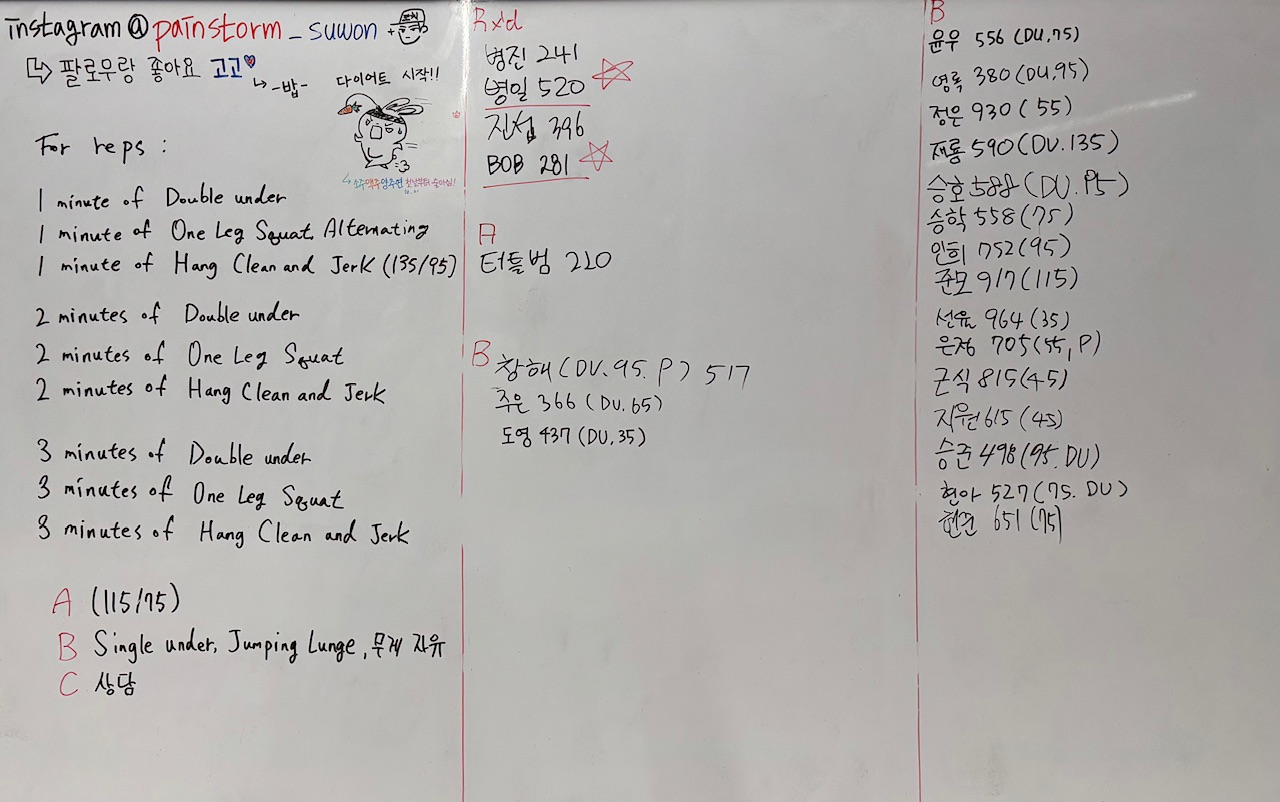 instagram@painstorm_suwon +
팔로우랑 좋아요 고고
-밥-
다이어트 시작!!
소주맥주양주연
For reps :
1 minute of Double under
1 minute of One Leg Squat Alternating
1 minute of Hang Clean and Jerk (135/95)
2 minutes of Double under
2 minutes of One Leg Squat
2 minutes of Hang Clean and Jerk
3 minutes of Double under
3 minutes of One Leg Squat
3 minutes of Hang Clean and Jerk
A (115/75)
B Single under, Jumping Lunge, 무게 자유
C 상담
Rx'd
병진 241
병일 520
진섭 396
BOB 281
A
터틀범 210
B
창해 (DU. 95. P) 517
주은 366 (DU. 65)
도영 437 (DU, 35)
B
윤우 556 (DU, 75)
영록 380 (DU, 95)
정은 930 (55)
재룡 590 (DU. 135)
승호 588 (DU. P5)
승학 558 (75)
인희 752 (95)
준모 917 (115)
선유 964 (35)
은정 705 (55, P)
근식 815 (45)
지원 615 (45)
승준 498 (95. DU)
현아 527 (75. DU)
651 (75)